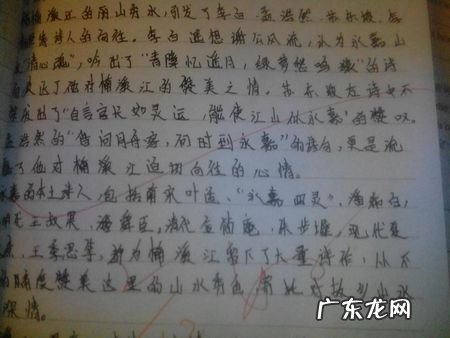 楠溪江的丽山秀水,引发了李白、孟浩然、朱东坡、等
诗人的向往。李白遥想谢公风流,认为永嘉山
"清心魂",吟出了"青障忆遥月,绿萝愁鸣猿"的诗
表达了他对楠溪江的赞美之情。苏东坡在诗中不
发出了"自言官长如灵运,能使江山似永嘉"的赞叹。
孟浩然的"借问同舟客,何时到永嘉"的诗句,更是流
露了他对楠溪江迫切向往的心情。
永嘉的本土诗人,包括南宋叶适、"永嘉四灵"、潘希白,
明代王叔果、朱步墀,现代夏
王季思等,都为楠溪江留下了大量诗作,从不
的角度赞美这里的山水秀色
深情。
广东龙网